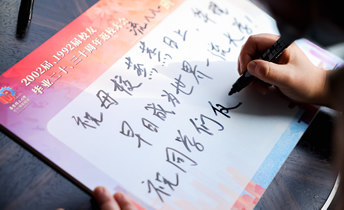 2002届、1992届校友
毕业二十、三十周年返校大会
祝母校蒸蒸日上
早日成为世界一流大学!
祝同学们